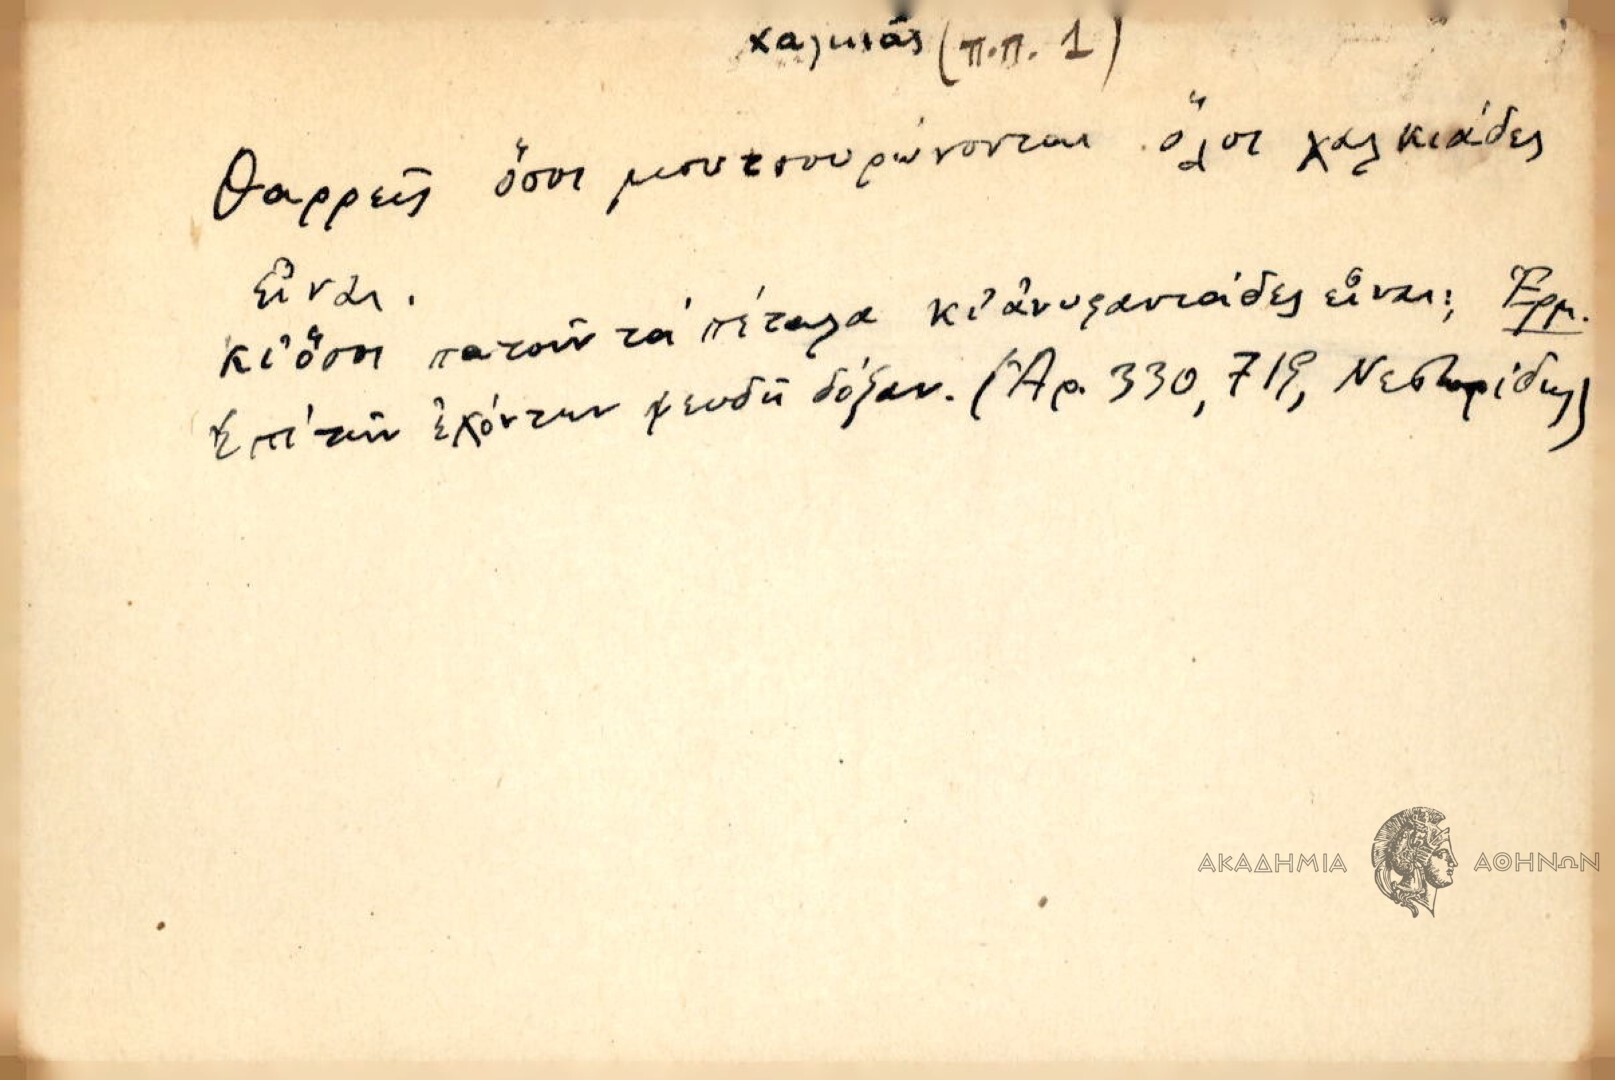 χαλκιᾶς (π.π. 1)
Θαρρεῖς ὅσοι μουτσουρώνονται ὅλοι χαλκιάδες
εἶναι.
κι' ὅσοι πατοῦν τὰ πέταλα κι' ἀνυφαντάδες εἶναι; Ἑρμ.
Ἐπὶ τῶν ἐχόντων ψευδῆ δόξαν. (Ἀρ. 330, 719, Νεστορίδης)
ΑΚΑΔΗΜΙΑ ΑΘΗΝΩΝ